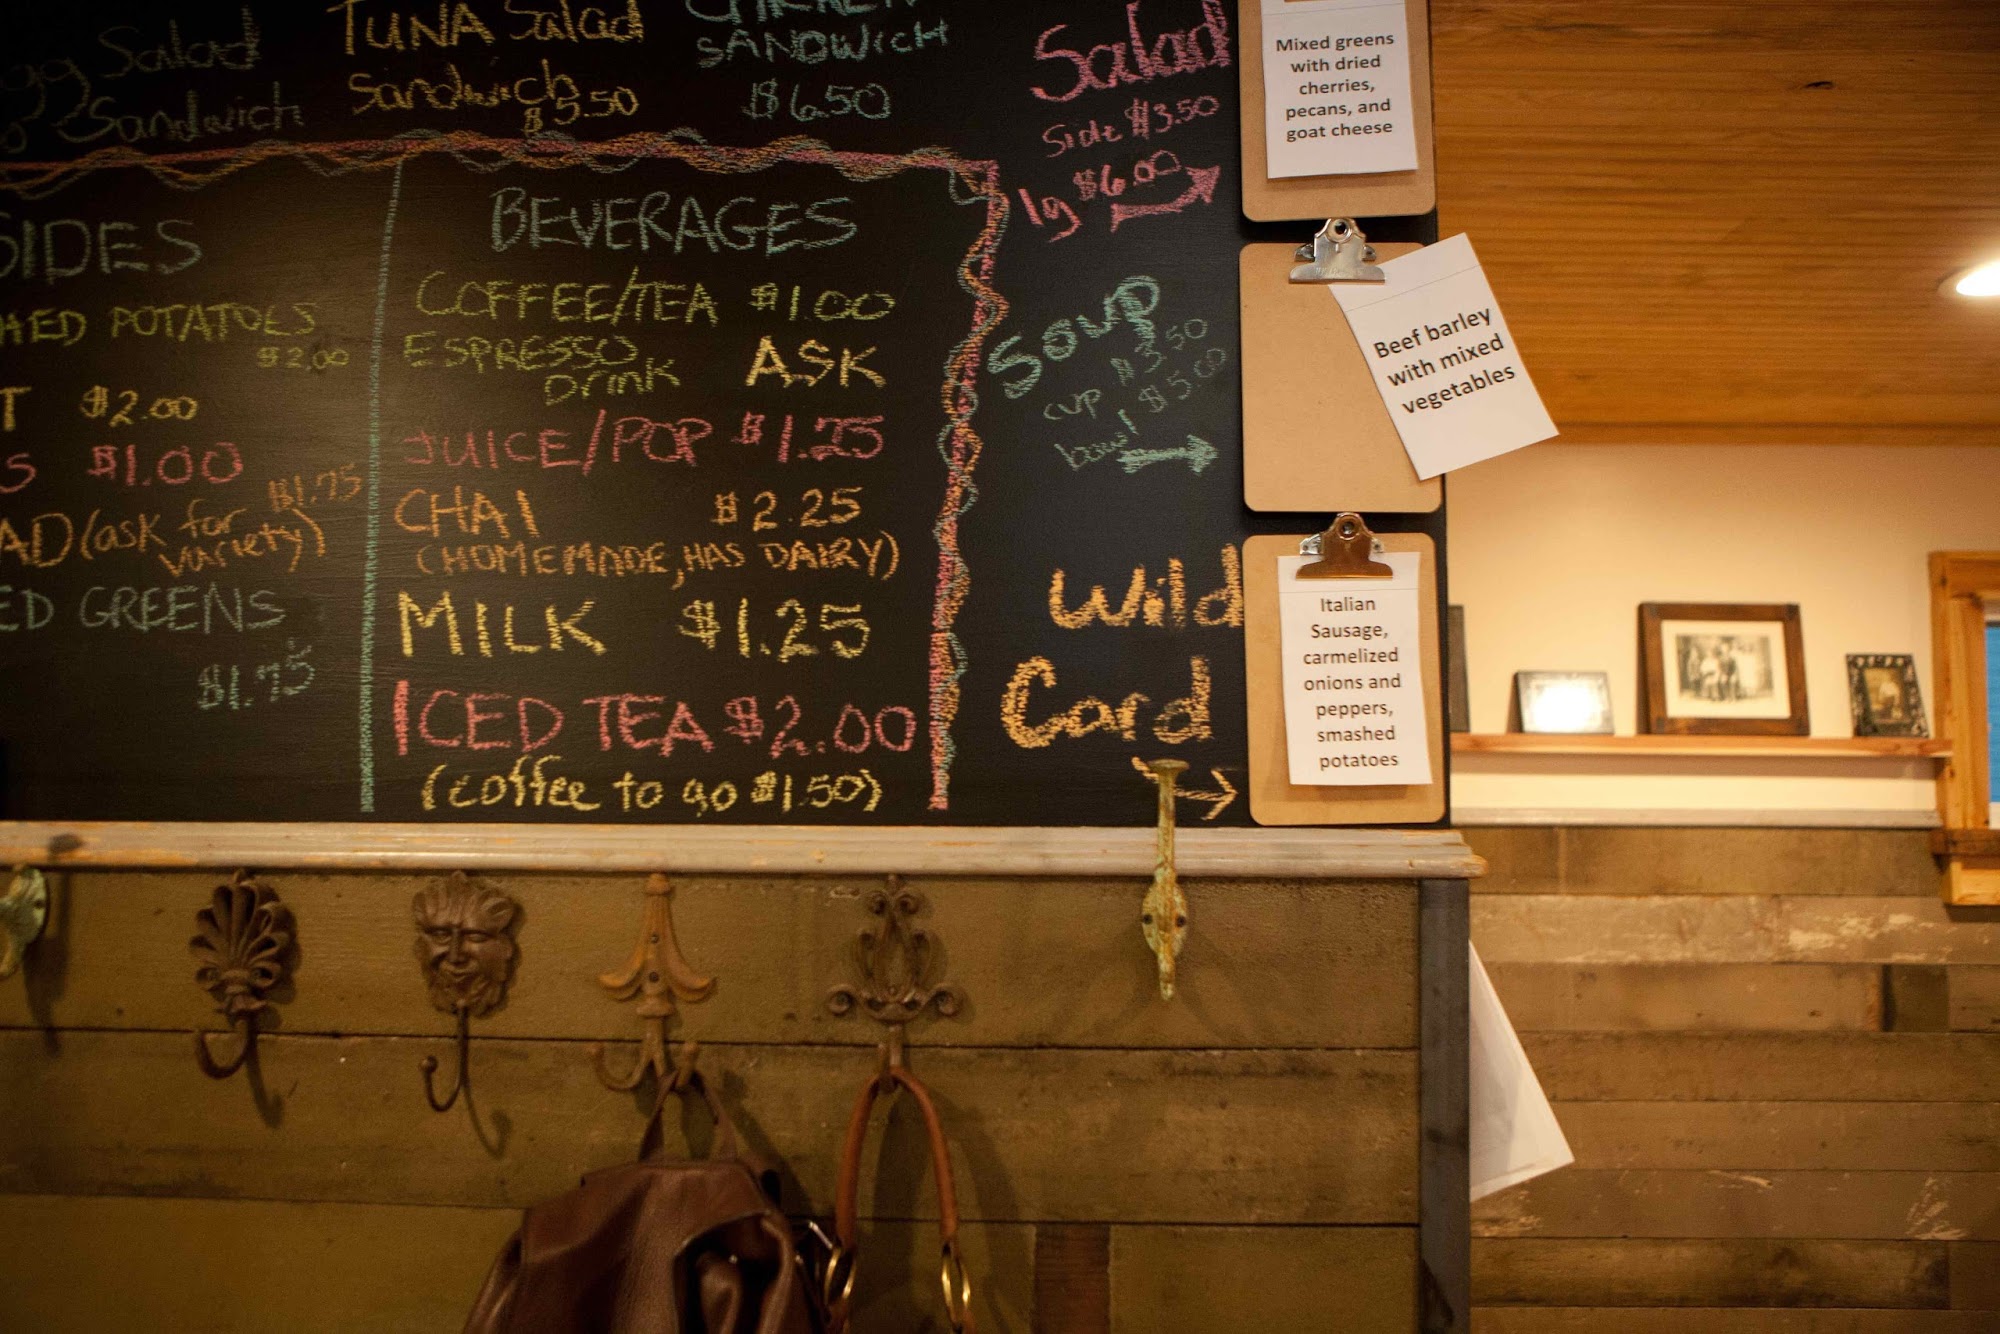 Salad
Sandwich
TUNA Salad
Sandwich
$5.50
SANDWich
$6.50
SIDES
POTATOES
$2.00
$2.00
$1.00
$1.75
(ask for
variety)
GREENS
$1.75
BEVERAGES
COFFEE/TEA $1.00
ESPRESSO
Drink ASK
JUICE/POP $1.25
CHAI $2.25
(HOMEMADE, HAS DAIRY)
MILK $1.25
ICED TEA $2.00
(coffee to go $1.50)
Salad
Side $3.50
lg $6.00
Soup
cup $3.50
bowl $5.00
Wild
Card
Mixed greens
with dried
cherries,
pecans, and
goat cheese
Beef barley
with mixed
vegetables
Italian
Sausage,
carmelized
onions and
peppers,
smashed
potatoes